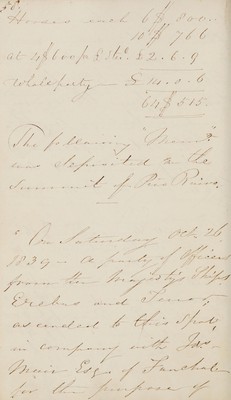 Horses each 6$, 800.
10$ 766
at 4/8 £ 2. 6. 9
Whole party — £ 14. 0. 6
64$ 515.
The following "Memo"
was deposited on the
Summit of Pico Ruivo.
"On Saturday Oct. 26
1839 – a party of Officers
from the Majesty's Ships
Erebus and Terror,
ascended to this Spot,
in company with Jas
Muir Esqr of Funchal
for the purpose of